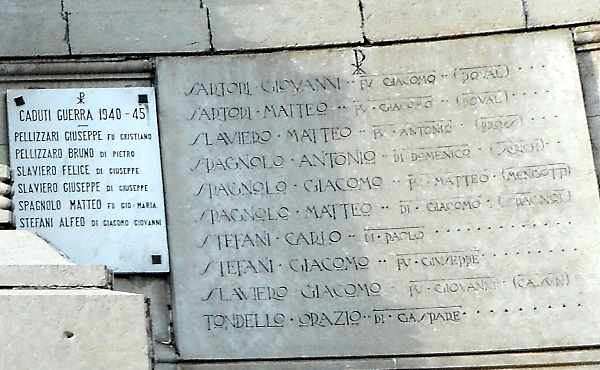 CADUTI GUERRA 1940-45
PELLIZZARI GIUSEPPE FU CRISTIANO
PELLIZZARO BRUNO DI PIETRO
SLAVIERO FELICE DI GIUSEPPE
SLAVIERO GIUSEPPE DI GIUSEPPE
SPAGNOLO MATTEO FU GIO·MARIA
STEFANI ALFEO DI GIACOMO GIOVANNI
SARTORI·GIOVANNI··FU GIACOMO·(DOVAL)····
SARTORI·MATTEO··FU·GIACOMO·(DOVAL)····
SLAVIERO·MATTEO··FU·ANTONIO·(BROJ)····
SPAGNOLO·ANTONIO··DI DOMENICO·(SORCH)···
SPAGNOLO·GIACOMO··FU·MATTEO·(MENGOTTI)
SPAGNOLO·MATTEO··DI·GIACOMO·(SPAGNOT)
STEFANI·CARLO··DI·PAOLO··········
STEFANI·GIACOMO··FU·GIUSEPPE·······
SLAVIERO GIACOMO··FU·GIOVANNI·(CASUN)
TONDELLO·ORAZIO··DI·GASPARE·······